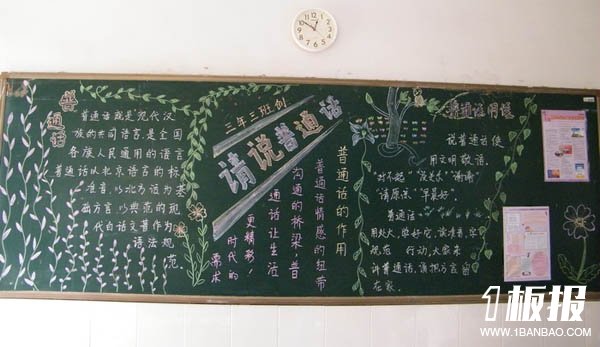 普通话
普通话就是现代汉
族的共同语言,是全国
各族人民通用的语言
普通话以北京语言的标
准音,以北方话为基
础方言,以典范的现
代白话文著作为
语法规
范。
三年三班创
请说普通话
普通话的作用
普通话情感的纽带
沟通的桥梁 普
通话让生活
更精彩!
时代的
需求
普通话用语
说普通话使
用文明敬语。
"对不起" "没关系" "谢谢"
"请原谅" "早晨好"。
普通话
行动,大家来
讲普通话,请把方言留
在家。
1板报
WWW.1BANBAO.COM